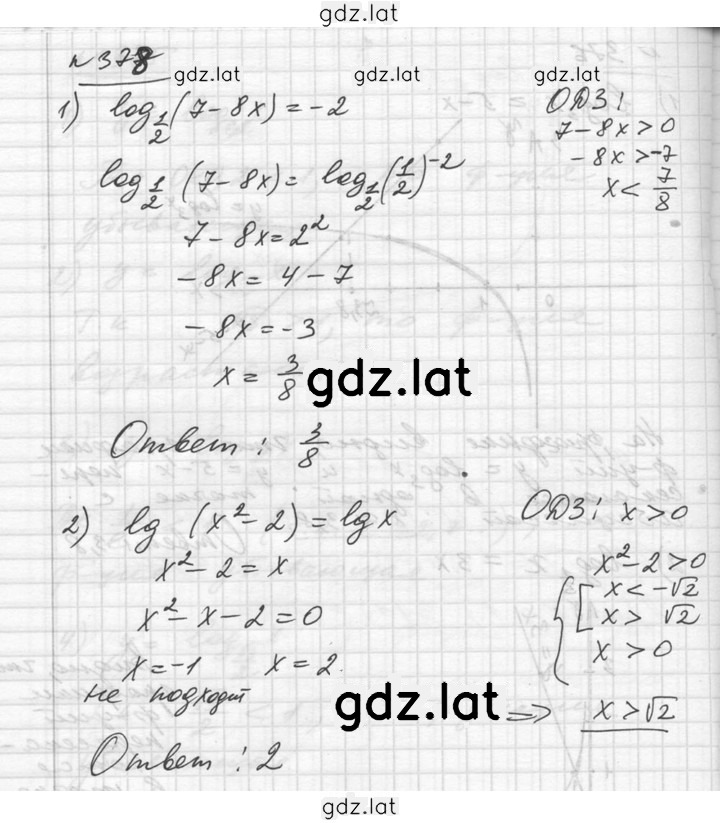 gdz.lat
№ 378
gdz.lat gdz.lat gdz.lat
1) log_{1/2}(7-8x) = -2
ОДЗ:
7-8x>0
-8x>-7
x < 7/8
log_{1/2} (7-8x) = log_{1/2}(1/2)^{-2}
7-8x=2²
-8x= 4-7
-8x=-3
x = 3/8
gdz.lat
Ответ: 3/8
2) lg (x²-2) = lg x
ОДЗ: x>0
x²-2 = x
x²-2>0
x²-x-2=0
{ [ x < -√2
x > √2
x > 0
x=-1 x=2.
не подходит
gdz.lat
=> x>√2
Ответ: 2
gdz.lat